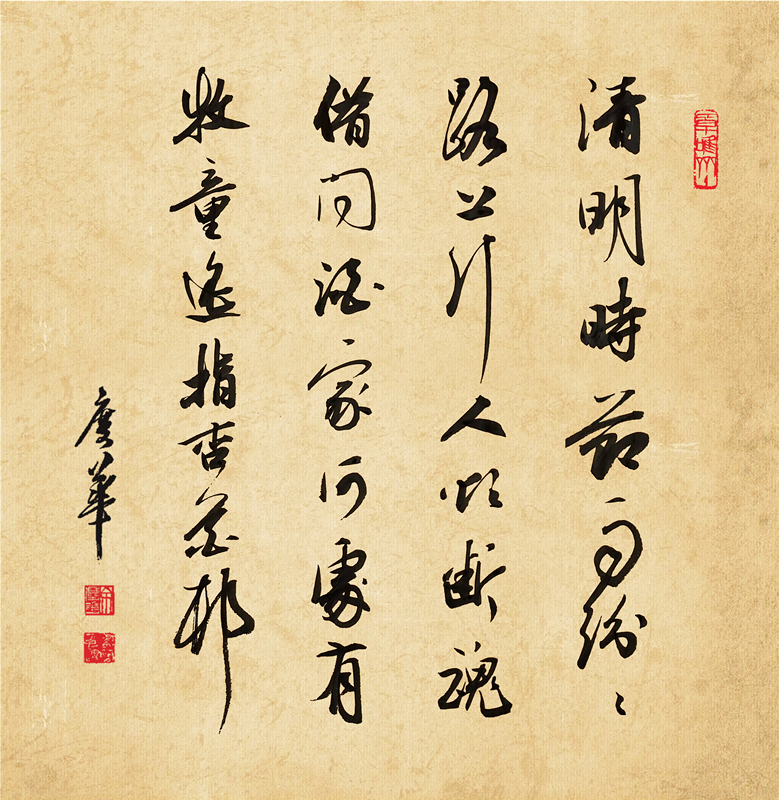 清明時節雨紛々
路上行人欲斷魂
借問酒家何處有
牧童遙指杏花邨
華